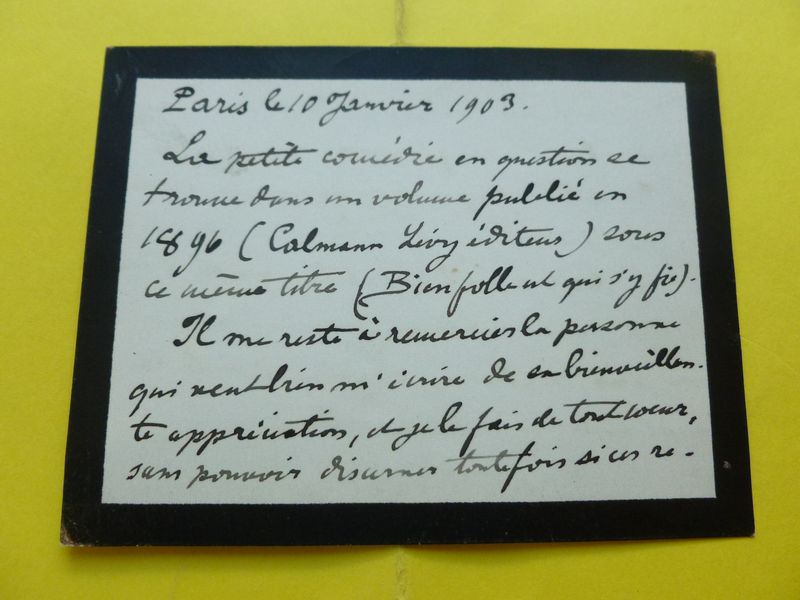 Paris le 10 Janvier 1903.
La petite comédie en question se
trouve dans un volume publié en
1896 (Calmann Lévy éditeur) sous
ce même titre (Bien folle est qui s'y fie).
Il me reste à remercier la personne
qui veut bien m'écrire de sa bienveillan-
te appréciation, et je le fais de tout coeur,
sans pouvoir discerner toutefois si ces re-